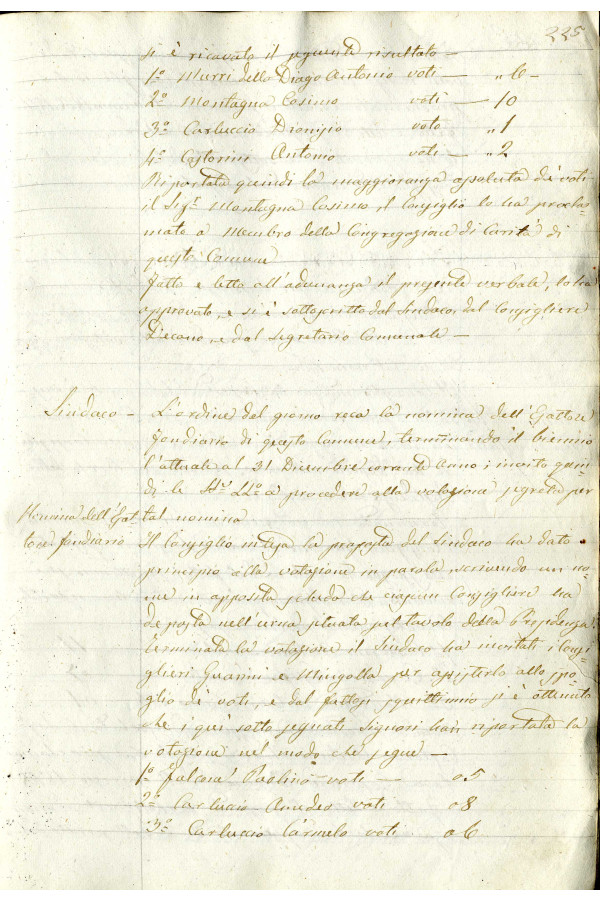 225
si è ricavato il seguente risultato —
1º Murri della Diago Antonio voti — „ 6 –
2º Montagna Cosimo voti — 10
3º Carluccio Dionisio voto „ 1
4º Castorini Antonio voti — „ 2
Riportata quindi la maggioranza assoluta di voti
il Sigr Montagna Cosimo, il Consiglio lo ha procla-
mato a Membro della Congregazione di Carità di
questo Comune
Fatto e letto all'adunanza il presente verbale, lo ha
approvato, e si è sottoscritto dal Sindaco, dal Consigliere
Decano, e dal Segretario Comunale —
Sindaco – L'ordine del giorno reca la nomina dell'Esattore
fondiario di questo Comune, terminando il biennio
l'attuale al 31 Dicembre corrente Anno; invito quin-
di le a procedere alla votazione segreta per
Nomina dell'Esat- tal nomina
tore fondiario Il Consiglio intesa la proposta del Sindaco ha dato
principio alla votazione in parola scrivendo un no-
me in apposita scheda che ciascun Consigliere ha
deposta nell'urna situata sul tavolo della Presidenza
Terminata la votazione il Sindaco ha invitati i Consi-
glieri Guarini e Mingolla per assisterlo allo spo-
glio di voti, e dal fattosi scruttinio si è ottenuto
che i qui sotto segnati Signori han riportata la
votazione nel modo che segue —
1º Falconi Paolino voti — 05
2º Carluccio Amedeo voti 08
3º Carluccio Carmelo voti 06